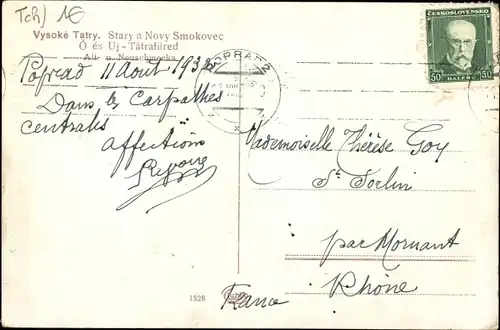 Tch) 1€
Vysoké Tatry. Stary a Novy Smokovec
Ó és Uj - Tátrafüred
Alt- u. Neuschmecks
Poprad 11 Août 1938
Dans les Carpathes
centrales
affections
POPRAD 2
ČESKOSLOVENSKO
50 HALÉŘŮ 50
Mademoiselle Thérèse Goy
St Sorlin
par Mornant
Rhône
France
1528